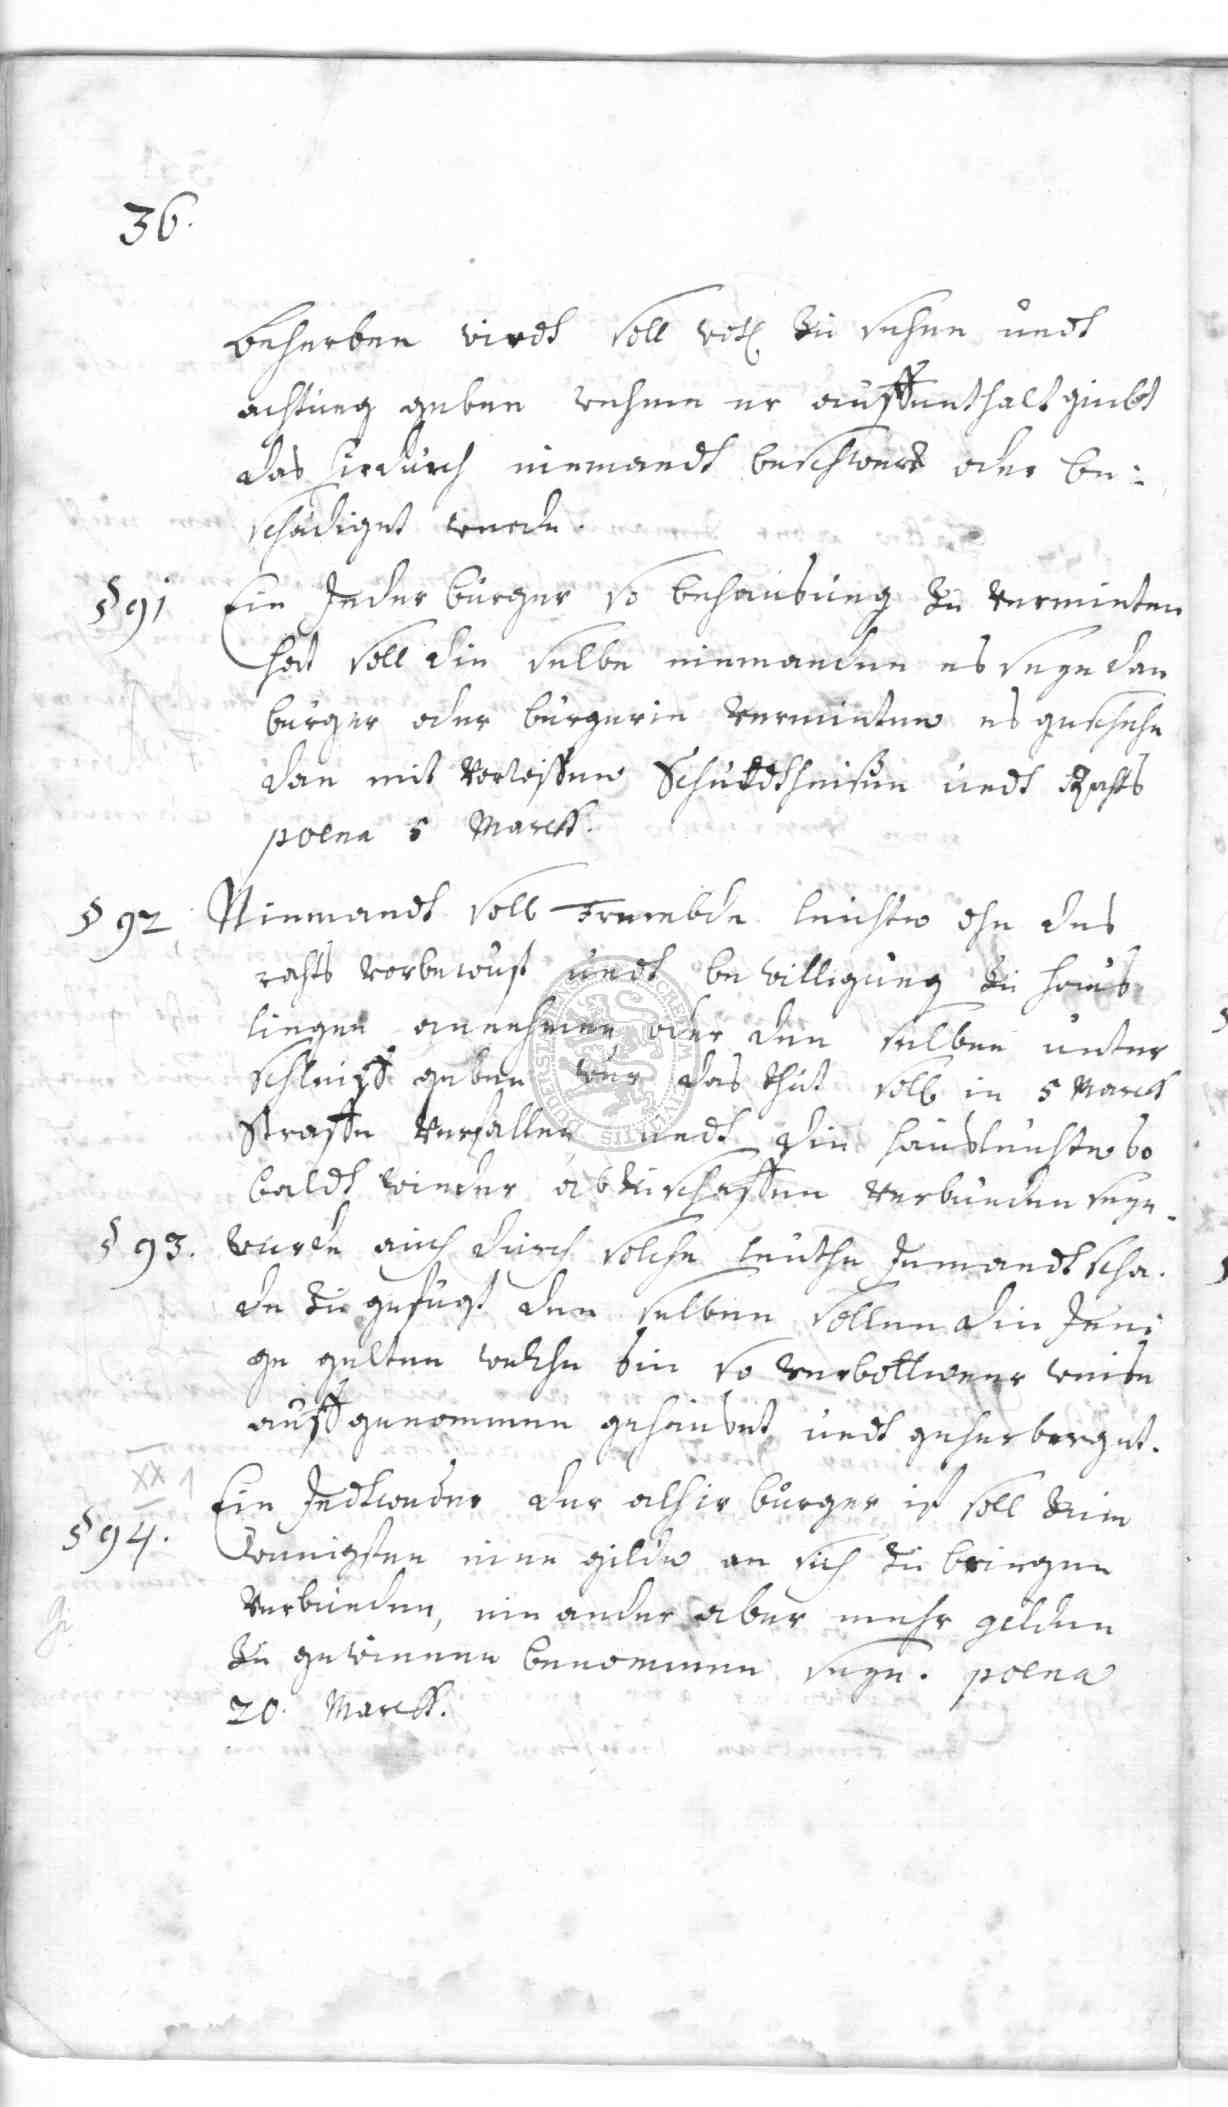 36.
beherben wirdt soll woll zu sehen undt
achtung geben wehme er auffenthalt giebt
das hirdurch niemandt beschwert oder be:
schädiget werde.
§ 91 Ein Jeder burger so behausung zu vermieten
hat soll die selbe niemanden es seye dan
burger oder burgerin vermieten es geschehe
dan mit vorwissen Schuldtheisen undt Rahts
poena 5 Marck.
§ 92 Niemandt soll frembde leuhte ohn des
rahts vorbewust undt bewilligung zu haus
lingen annehmen oder den selben unter
schleiff geben wer das thut soll in 5 Marck
Straffe verfallen undt die hausleuhte so
baldt wieder abzuschaffen verbunden seye.
§ 93. wurde auch durch solche leuthe Jemandt scha.
de zu gefugt den selben sollen die Jeni
ge gelten welche sie so verbottener weise
auffgenommen gehauset undt geherberget.
XX 1
§ 94. Ein Jedtweder der alhir burger ist soll zum
wenigsten eine gilde an sich zu bringen
verbunden, ein ander aber mehr gilden
zu gewinnen benommen seye. poena
20. Marck.